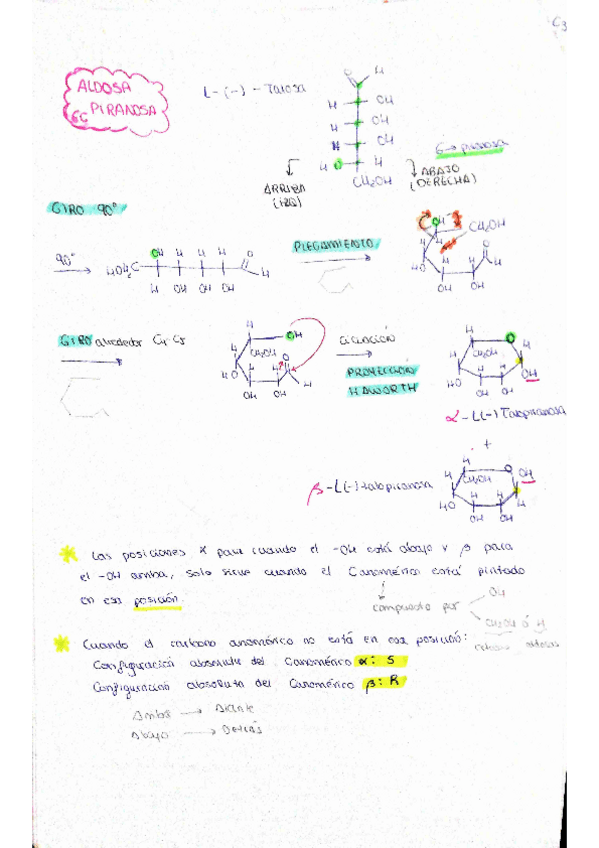 C3
ALDOSA
6C PIRANOSA
L-(-)-Talosa
H
H OH
H OH
H OH
HO H
CH₂OH
6→ piranosa
ARRIBA
(IZQ)
ABAJO
(DERECHA)
GIRO 90°
90°
HOH₂C OH H H H O H
H OH OH OH
PLEGAMIENTO
OH CH₂OH
H
HO O H
OH OH
GIRO alrededor C4 C5
H OH
CH₂OH
H H O
HO H
OH OH
CICLACIÓN
PROYECCIÓN
HAWORTH
H O
CH₂OH
H
HO OH
OH OH
α-L(-)Talopiranosa
+
β-L(-)talopiranosa
H O OH
CH₂OH
HO H
OH OH
* Las posiciones α para cuando el -OH está abajo y β para
el -OH arriba, solo sirve cuando el Canomérico está pintado
en esa posición.
compuesto por
OH
CH₂OH ó H
cetosas aldosas
* Cuando el carbono anomérico no está en esa posición:
Configuración absoluta del Canomérico α: S
Configuración absoluta del Canomérico β: R
Arriba → Delante
Abajo → Detrás